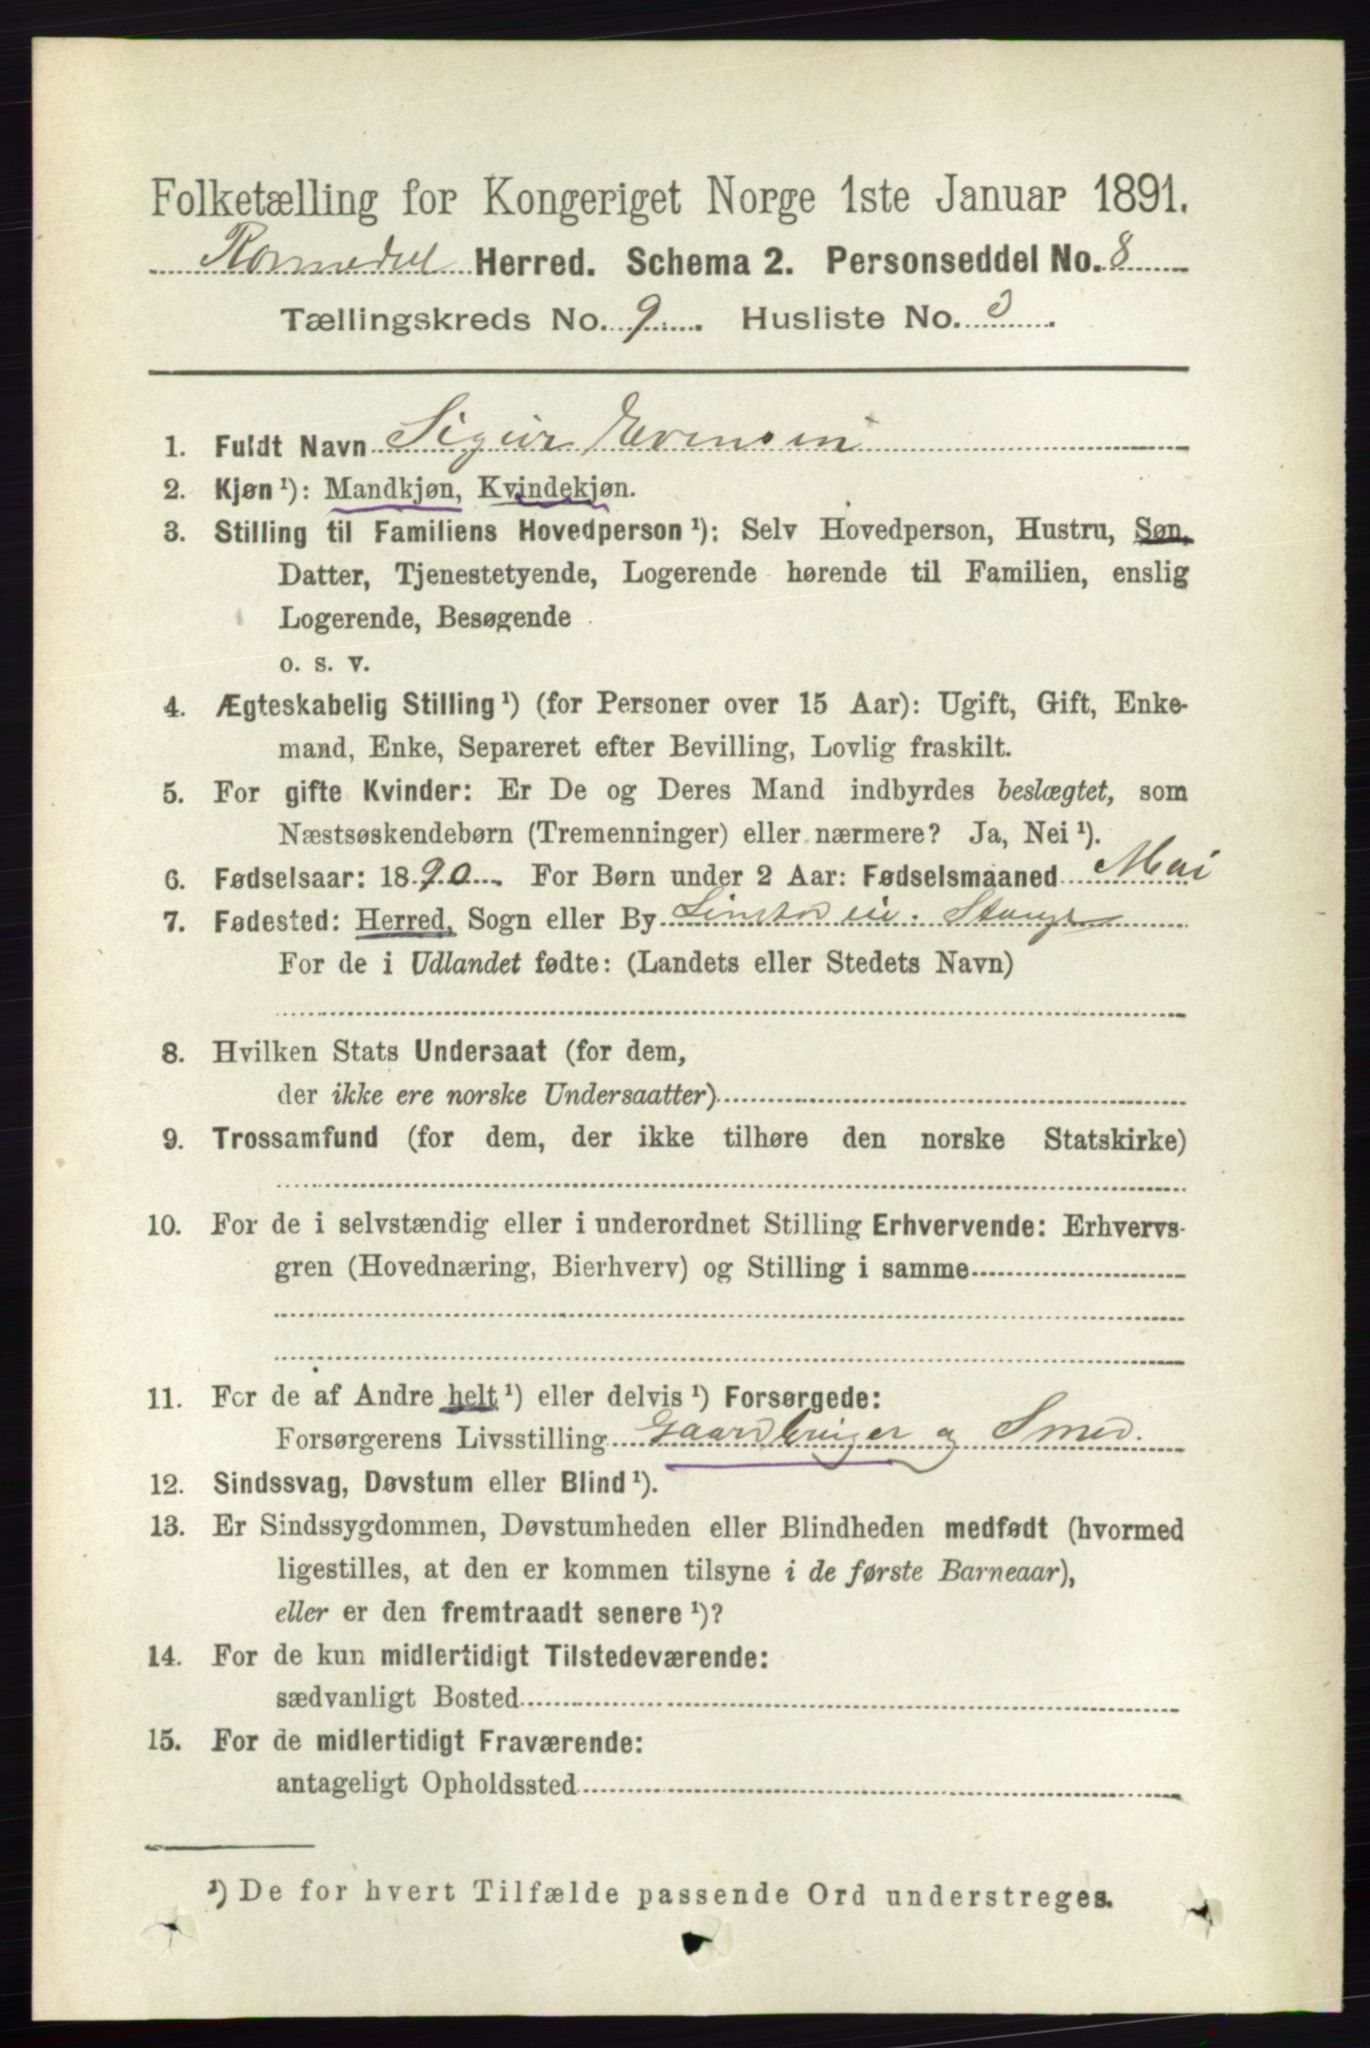 Folketælling for Kongeriget Norge 1ste Januar 1891.
Romedal Herred. Schema 2. Personseddel No. 8
Tællingskreds No. 9. Husliste No. 3.
1. Fuldt Navn Sigur Evensen
2. Kjøn ¹): Mandkjøn, Kvindekjøn.
3. Stilling til Familiens Hovedperson ¹): Selv Hovedperson, Hustru, Søn,
Datter, Tjenestetyende, Logerende hørende til Familien, enslig
Logerende, Besøgende
o. s. v.
4. Ægteskabelig Stilling ¹) (for Personer over 15 Aar): Ugift, Gift, Enke-
mand, Enke, Separeret efter Bevilling, Lovlig fraskilt.
5. For gifte Kvinder: Er De og Deres Mand indbyrdes beslægtet, som
Næstsøskendebørn (Tremenninger) eller nærmere? Ja, Nei ¹).
6. Fødselsaar: 1890. For Børn under 2 Aar: Fødselsmaaned Mai
7. Fødested: Herred, Sogn eller By Stange
For de i Udlandet fødte: (Landets eller Stedets Navn)
8. Hvilken Stats Undersaat (for dem,
der ikke ere norske Undersaatter)
9. Trossamfund (for dem, der ikke tilhøre den norske Statskirke)
10. For de i selvstændig eller i underordnet Stilling Erhvervende: Erhvervs-
gren (Hovednæring, Bierhverv) og Stilling i samme
11. For de af Andre helt ¹) eller delvis ¹) Forsørgede:
Forsørgerens Livsstilling Gaardbruger og Smed.
12. Sindssvag, Døvstum eller Blind ¹).
13. Er Sindssygdommen, Døvstumheden eller Blindheden medfødt (hvormed
ligestilles, at den er kommen tilsyne i de første Barneaar),
eller er den fremtraadt senere ¹)?
14. For de kun midlertidigt Tilstedeværende:
sædvanligt Bosted
15. For de midlertidigt Fraværende:
antageligt Opholdssted
¹) De for hvert Tilfælde passende Ord understreges.